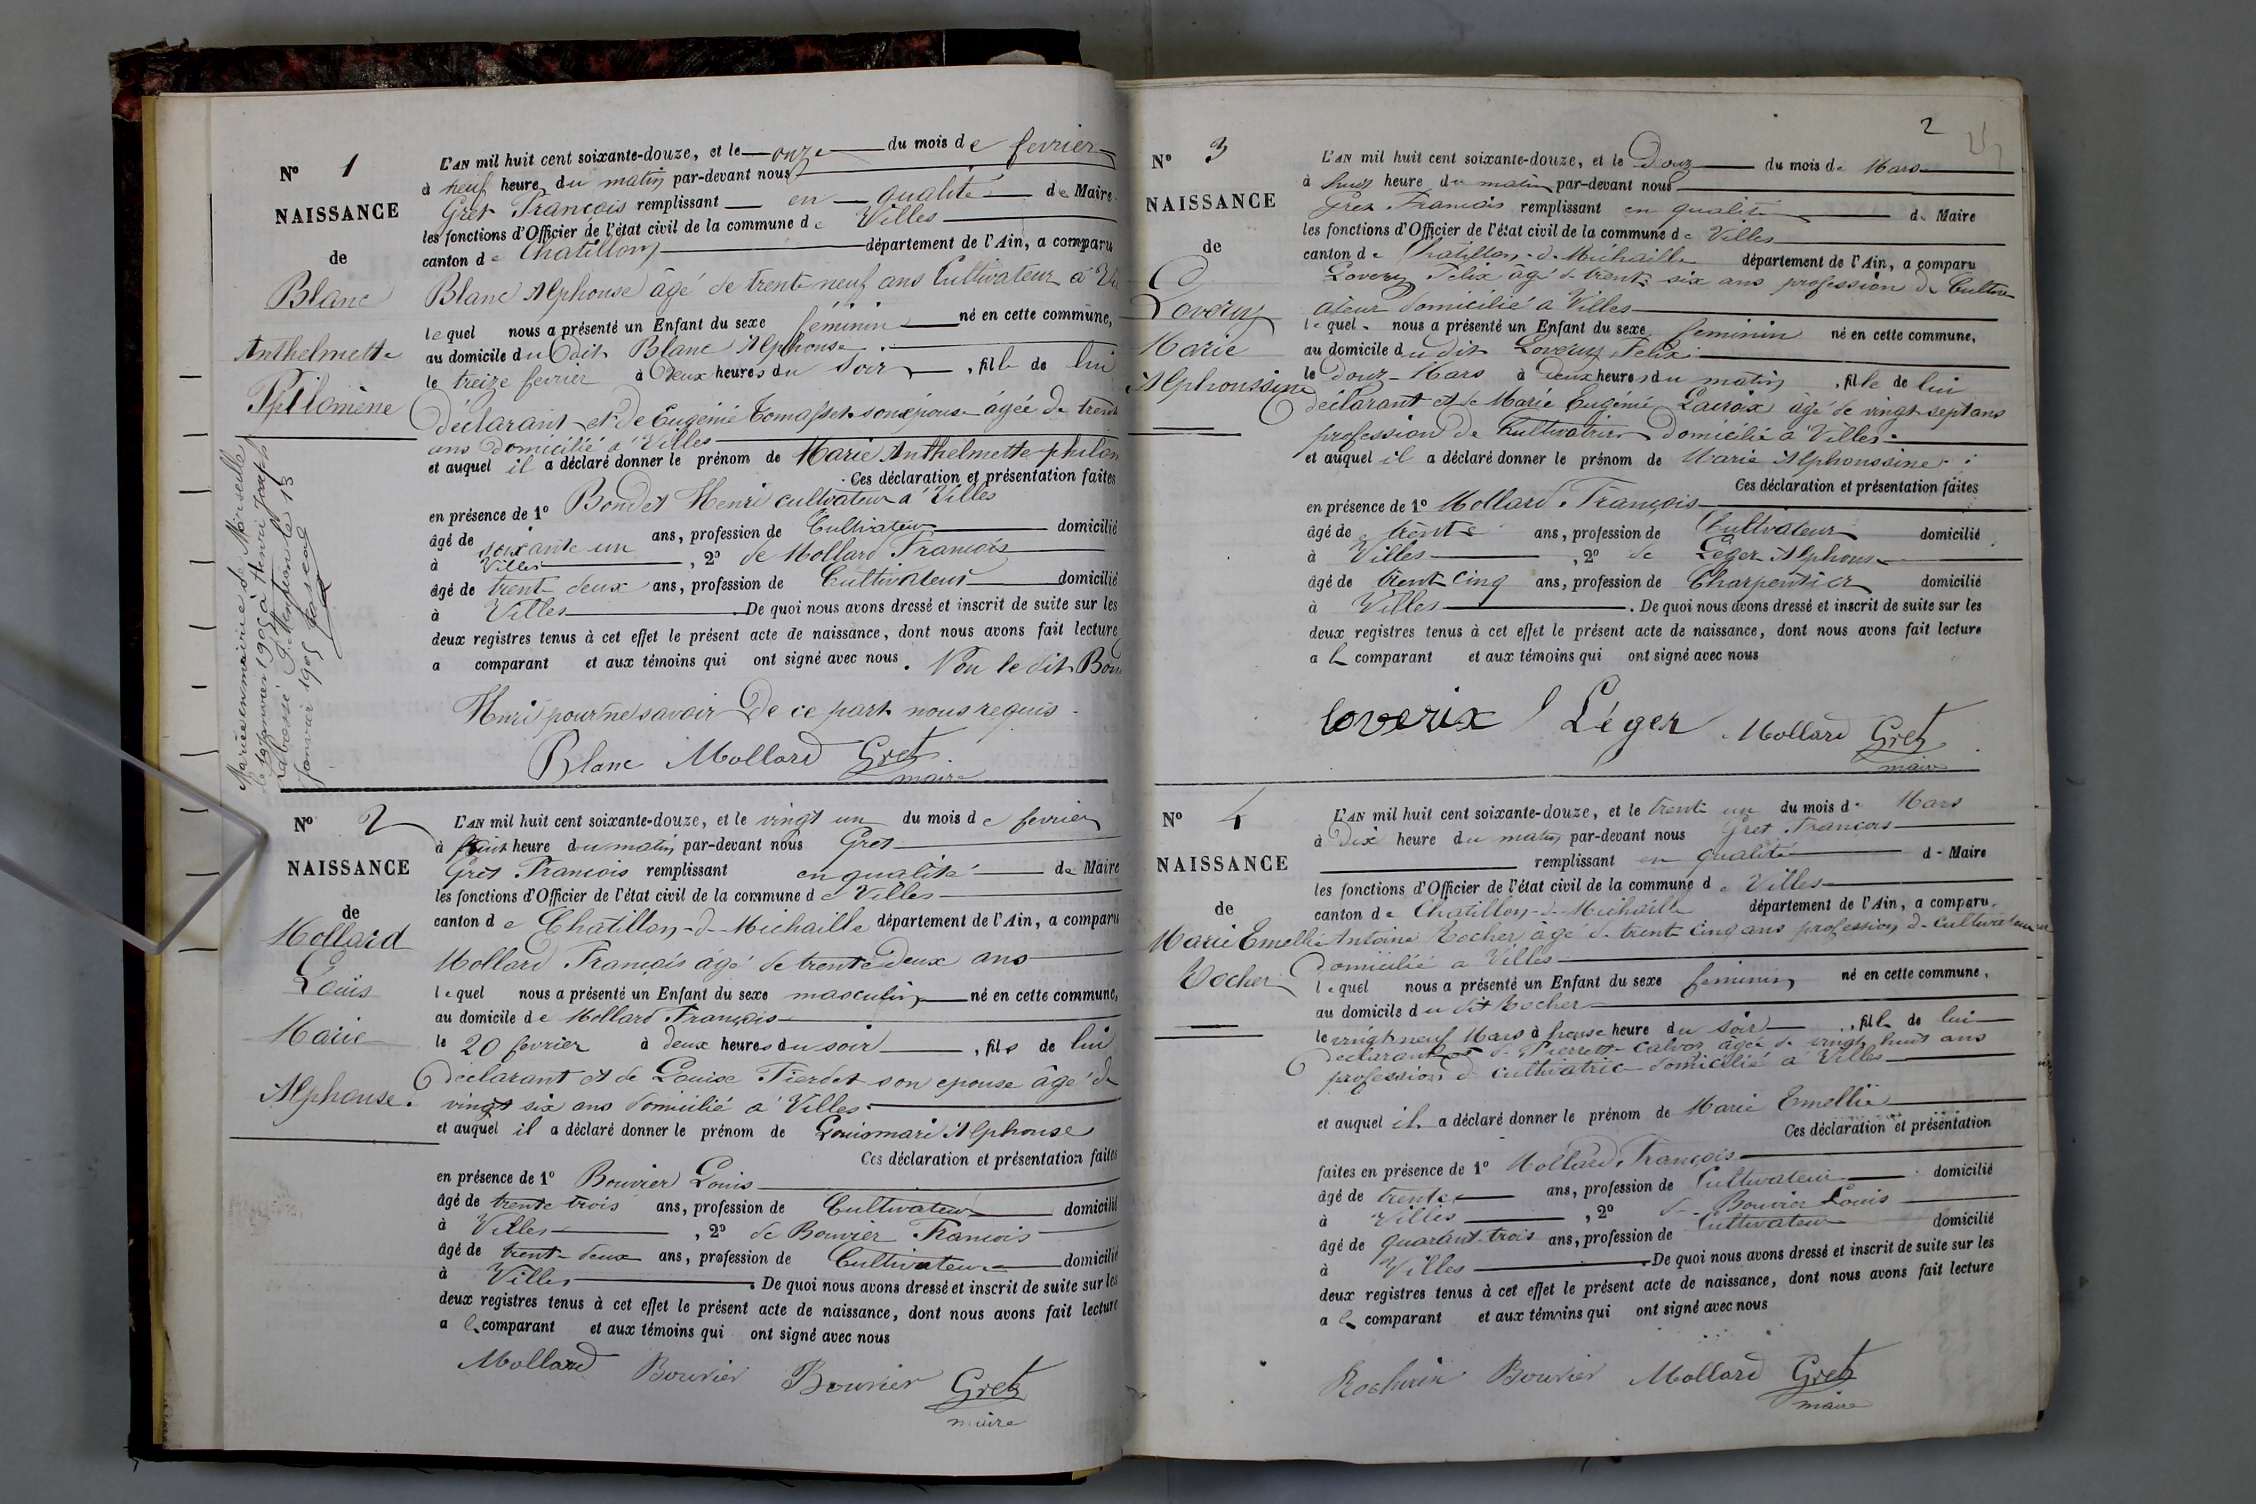 N° 1
NAISSANCE
de
Blanc
Anthelmette
Philomène
L'AN mil huit cent soixante-douze, et le onze du mois de fevrier
à neuf heure du matin par-devant nous
Gret François remplissant en qualité de Maire
les fonctions d'Officier de l'état civil de la commune de Villes
canton de Chatillon département de l'Ain, a comparu
Blanc Alphonse âgé de trente neuf ans Cultivateur à
lequel nous a présenté un Enfant du sexe féminin né en cette commune,
au domicile du dit Blanc Alphonse
le treize fevrier à Deux heures du soir, fille de lui
déclarant et de Eugénie son épouse âgée de trente
ans domicilié à Villes
et auquel il a déclaré donner le prénom de Marie Anthelmette philom
Ces déclaration et présentation faites
en présence de 1° Bondet Henri cultivateur à Villes
âgé de soixante un ans, profession de Cultivateur domicilié
à Villes, 2° de Mollard François
âgé de trente deux ans, profession de Cultivateur domicilié
à Villes. De quoi nous avons dressé et inscrit de suite sur les
deux registres tenus à cet effet le présent acte de naissance, dont nous avons fait lecture
a comparant et aux témoins qui ont signé avec nous. Non le dit Bon
Henri pour ne savoir De ce part nous requis
Blanc Mollard Gret
maire
Mariée en mairie de Marseille
janvier 1905 à Henri Joseph
le 13
janvier 1905
N° 2
NAISSANCE
de
Mollard
Louis
Marie
Alphonse.
L'AN mil huit cent soixante-douze, et le vingt un du mois de fevrier
à huit heure du matin par-devant nous Gret
Gret François remplissant en qualité de Maire
les fonctions d'Officier de l'état civil de la commune de Villes
canton de Chatillon-d-Michaille département de l'Ain, a comparu
Mollard François âgé de trente Deux ans
lequel nous a présenté un Enfant du sexe masculin né en cette commune,
au domicile de Mollard François
le 20 fevrier à deux heures du soir, fils de lui
declarant et de Louise Tierdet son epouse âgé de
vingt six ans domicilié à Villes
et auquel il a déclaré donner le prénom de Louismari Alphonse
Ces déclaration et présentation faites
en présence de 1° Bouvier Louis
âgé de trente trois ans, profession de Cultivateur domicilié
à Villes, 2° de Bouvier François
âgé de trente deux ans, profession de Cultivateur domicilié
à Villes. De quoi nous avons dressé et inscrit de suite sur les
deux registres tenus à cet effet le présent acte de naissance, dont nous avons fait lecture
a le comparant et aux témoins qui ont signé avec nous
Mollard Bouvier Bouvier Gret
maire
2
N° 3
NAISSANCE
de
Loverix
Marie
Alphoussine
L'AN mil huit cent soixante-douze, et le Douz du mois de Mars
à huit heure du matin par-devant nous
Gret François remplissant en qualité de Maire
les fonctions d'Officier de l'état civil de la commune de Villes
canton de Chatillon-d-Michaille département de l'Ain, a comparu
Loverix Felix âgé de trente six ans profession de Cultiv
ateur domicilié à Villes
lequel nous a présenté un Enfant du sexe feminin né en cette commune,
au domicile du dit Loverix Felix
le douz Mars à deux heures du matin, fille de lui
déclarant et de Marie Eugénie Lacroix âgé de vingt sept ans
profession de Cultivatrice domicilié à Villes
et auquel il a déclaré donner le prénom de Marie Alphoussine
Ces déclaration et présentation faites
en présence de 1° Mollard François
âgé de trente ans, profession de Cultivateur domicilié
à Villes, 2° de Leger Alphons
âgé de trent cinq ans, profession de Charpentier domicilié
à Villes. De quoi nous avons dressé et inscrit de suite sur les
deux registres tenus à cet effet le présent acte de naissance, dont nous avons fait lecture
a le comparant et aux témoins qui ont signé avec nous
loverix Léger Mollard Gret
maire
N° 4
NAISSANCE
de
Marie Emellie
Rocher
L'AN mil huit cent soixante-douze, et le trente un du mois de Mars
à Dix heure du matin par-devant nous Gret François
remplissant en qualité de Maire
les fonctions d'Officier de l'état civil de la commune de Villes
canton de Chatillon-d-Michaille département de l'Ain, a comparu
Antoine Rocher âgé de trente cinq ans profession de cultivateur
domicilié à Villes
lequel nous a présenté un Enfant du sexe feminin né en cette commune,
au domicile du dit Rocher
le vingt neuf Mars à heure du soir, fille de lui
declarant et de Pierrette Calvos âgée de vingt huit ans
profession de cultivatrice domicilié à Villes
et auquel il a déclaré donner le prénom de Marie Emellie
Ces déclaration et présentation
faites en présence de 1° Mollard François
âgé de trente ans, profession de Cultivateur domicilié
à Villes, 2° de Bouvier Louis
âgé de quarant trois ans, profession de Cultivateur domicilié
à Villes. De quoi nous avons dressé et inscrit de suite sur les
deux registres tenus à cet effet le présent acte de naissance, dont nous avons fait lecture
a le comparant et aux témoins qui ont signé avec nous
Bouvier Mollard Gret
maire